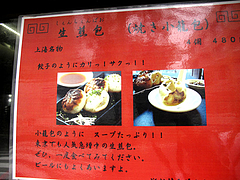 生煎包 (焼き小籠包)
上海名物
餃子のようにカリー!サクー!!
小籠包のように スープたっぷり!!
東京でも人気急増中の生煎包。
ぜひ、一度食べてみてください。
ビールにもよくあいますよ。